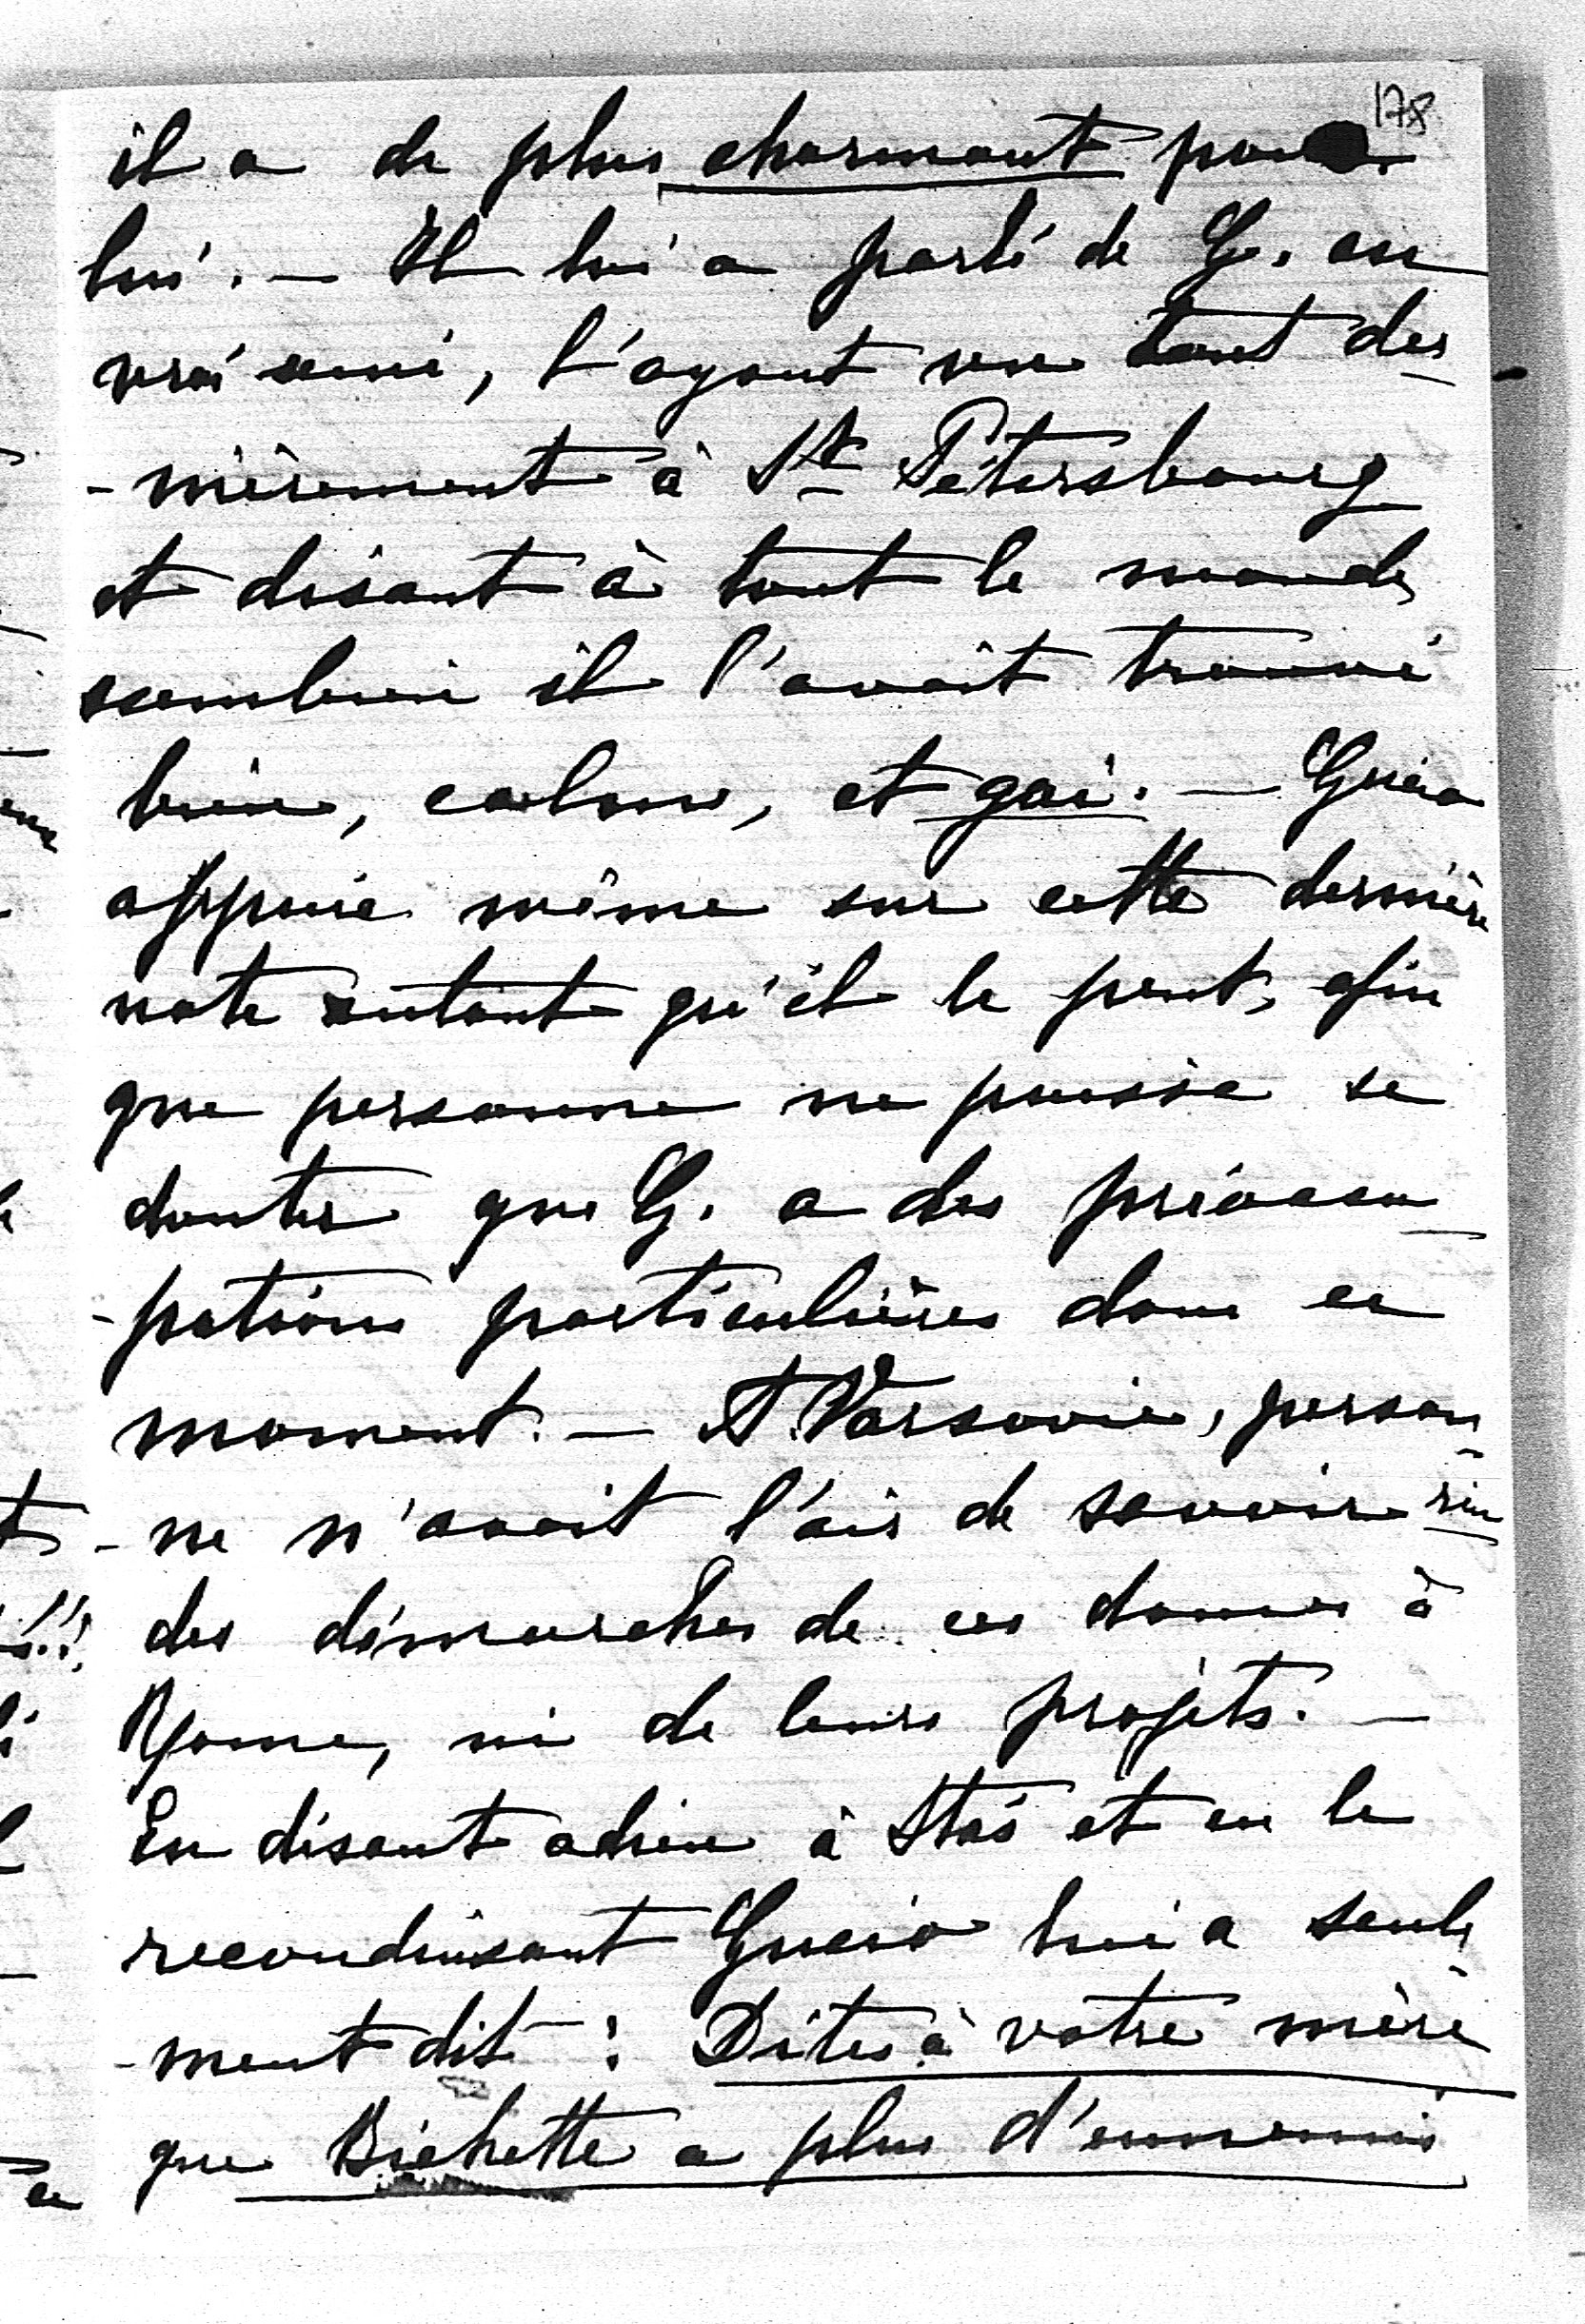 178
il a de plus charmant pour
lui. — Il lui a parlé de G. en
vrai ami, l'ayant vu tout der-
-nièrement à St Pétersbourg
et disant à tout le monde
combien il l'avait trouvé
bien, calme, et gai. — Gucio
appuie même sur cette dernière
note autant qu'il le peut, afin
que personne ne puisse se
douter que G. a des préoccu-
-pations particulières dans ce
moment. — A Varsovie, person-
-ne n'avait l'air de savoir rien
des démarches de ces dames à
Rome, ni de leurs projets. —
En disant adieu à Staś et en le
reconduisant Gucio lui a seule-
-ment dit : Dites à votre mère
que Bichette a plus d'ennemis